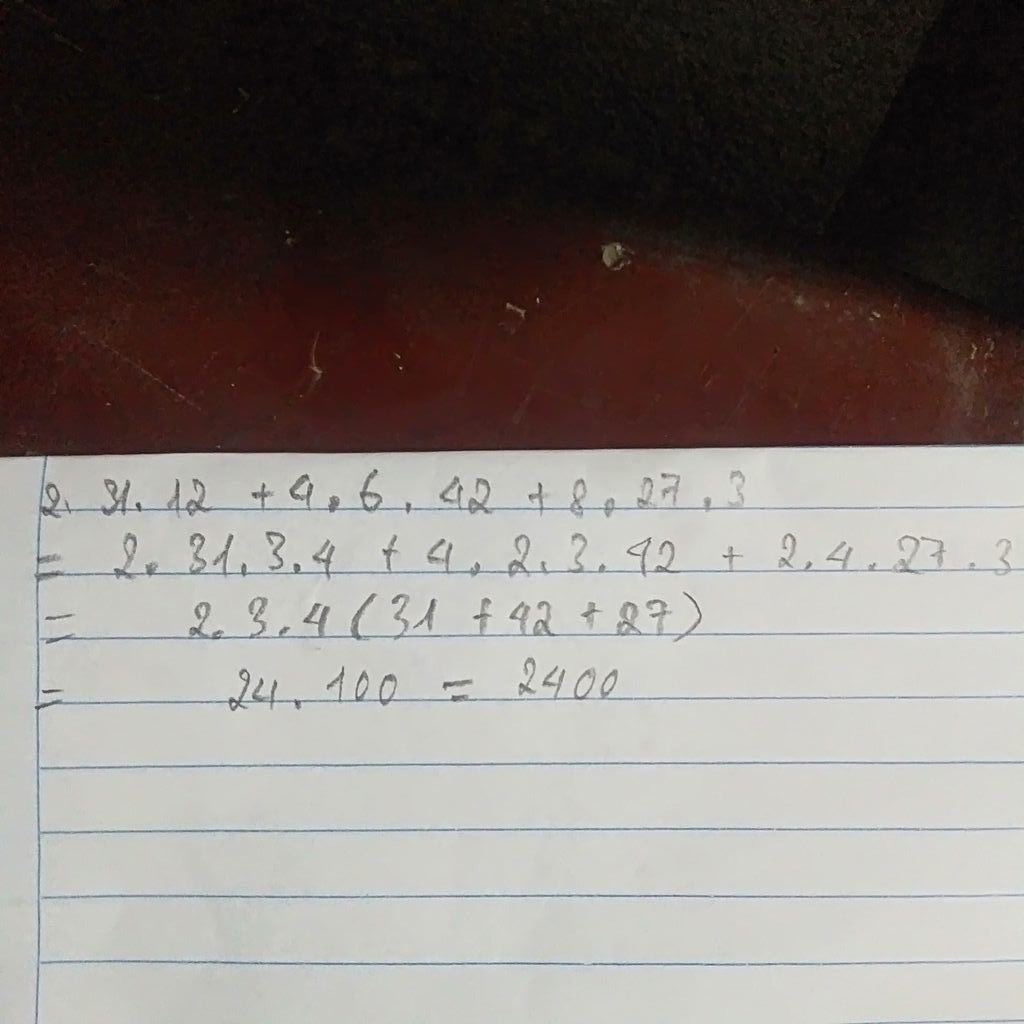 2. 31. 12 + 4. 6. 42 + 8. 27. 3
= 2. 31. 3. 4 + 4. 2. 3. 42 + 2. 4. 27. 3
= 2. 3. 4 (31 + 42 + 27)
= 24. 100 = 2400